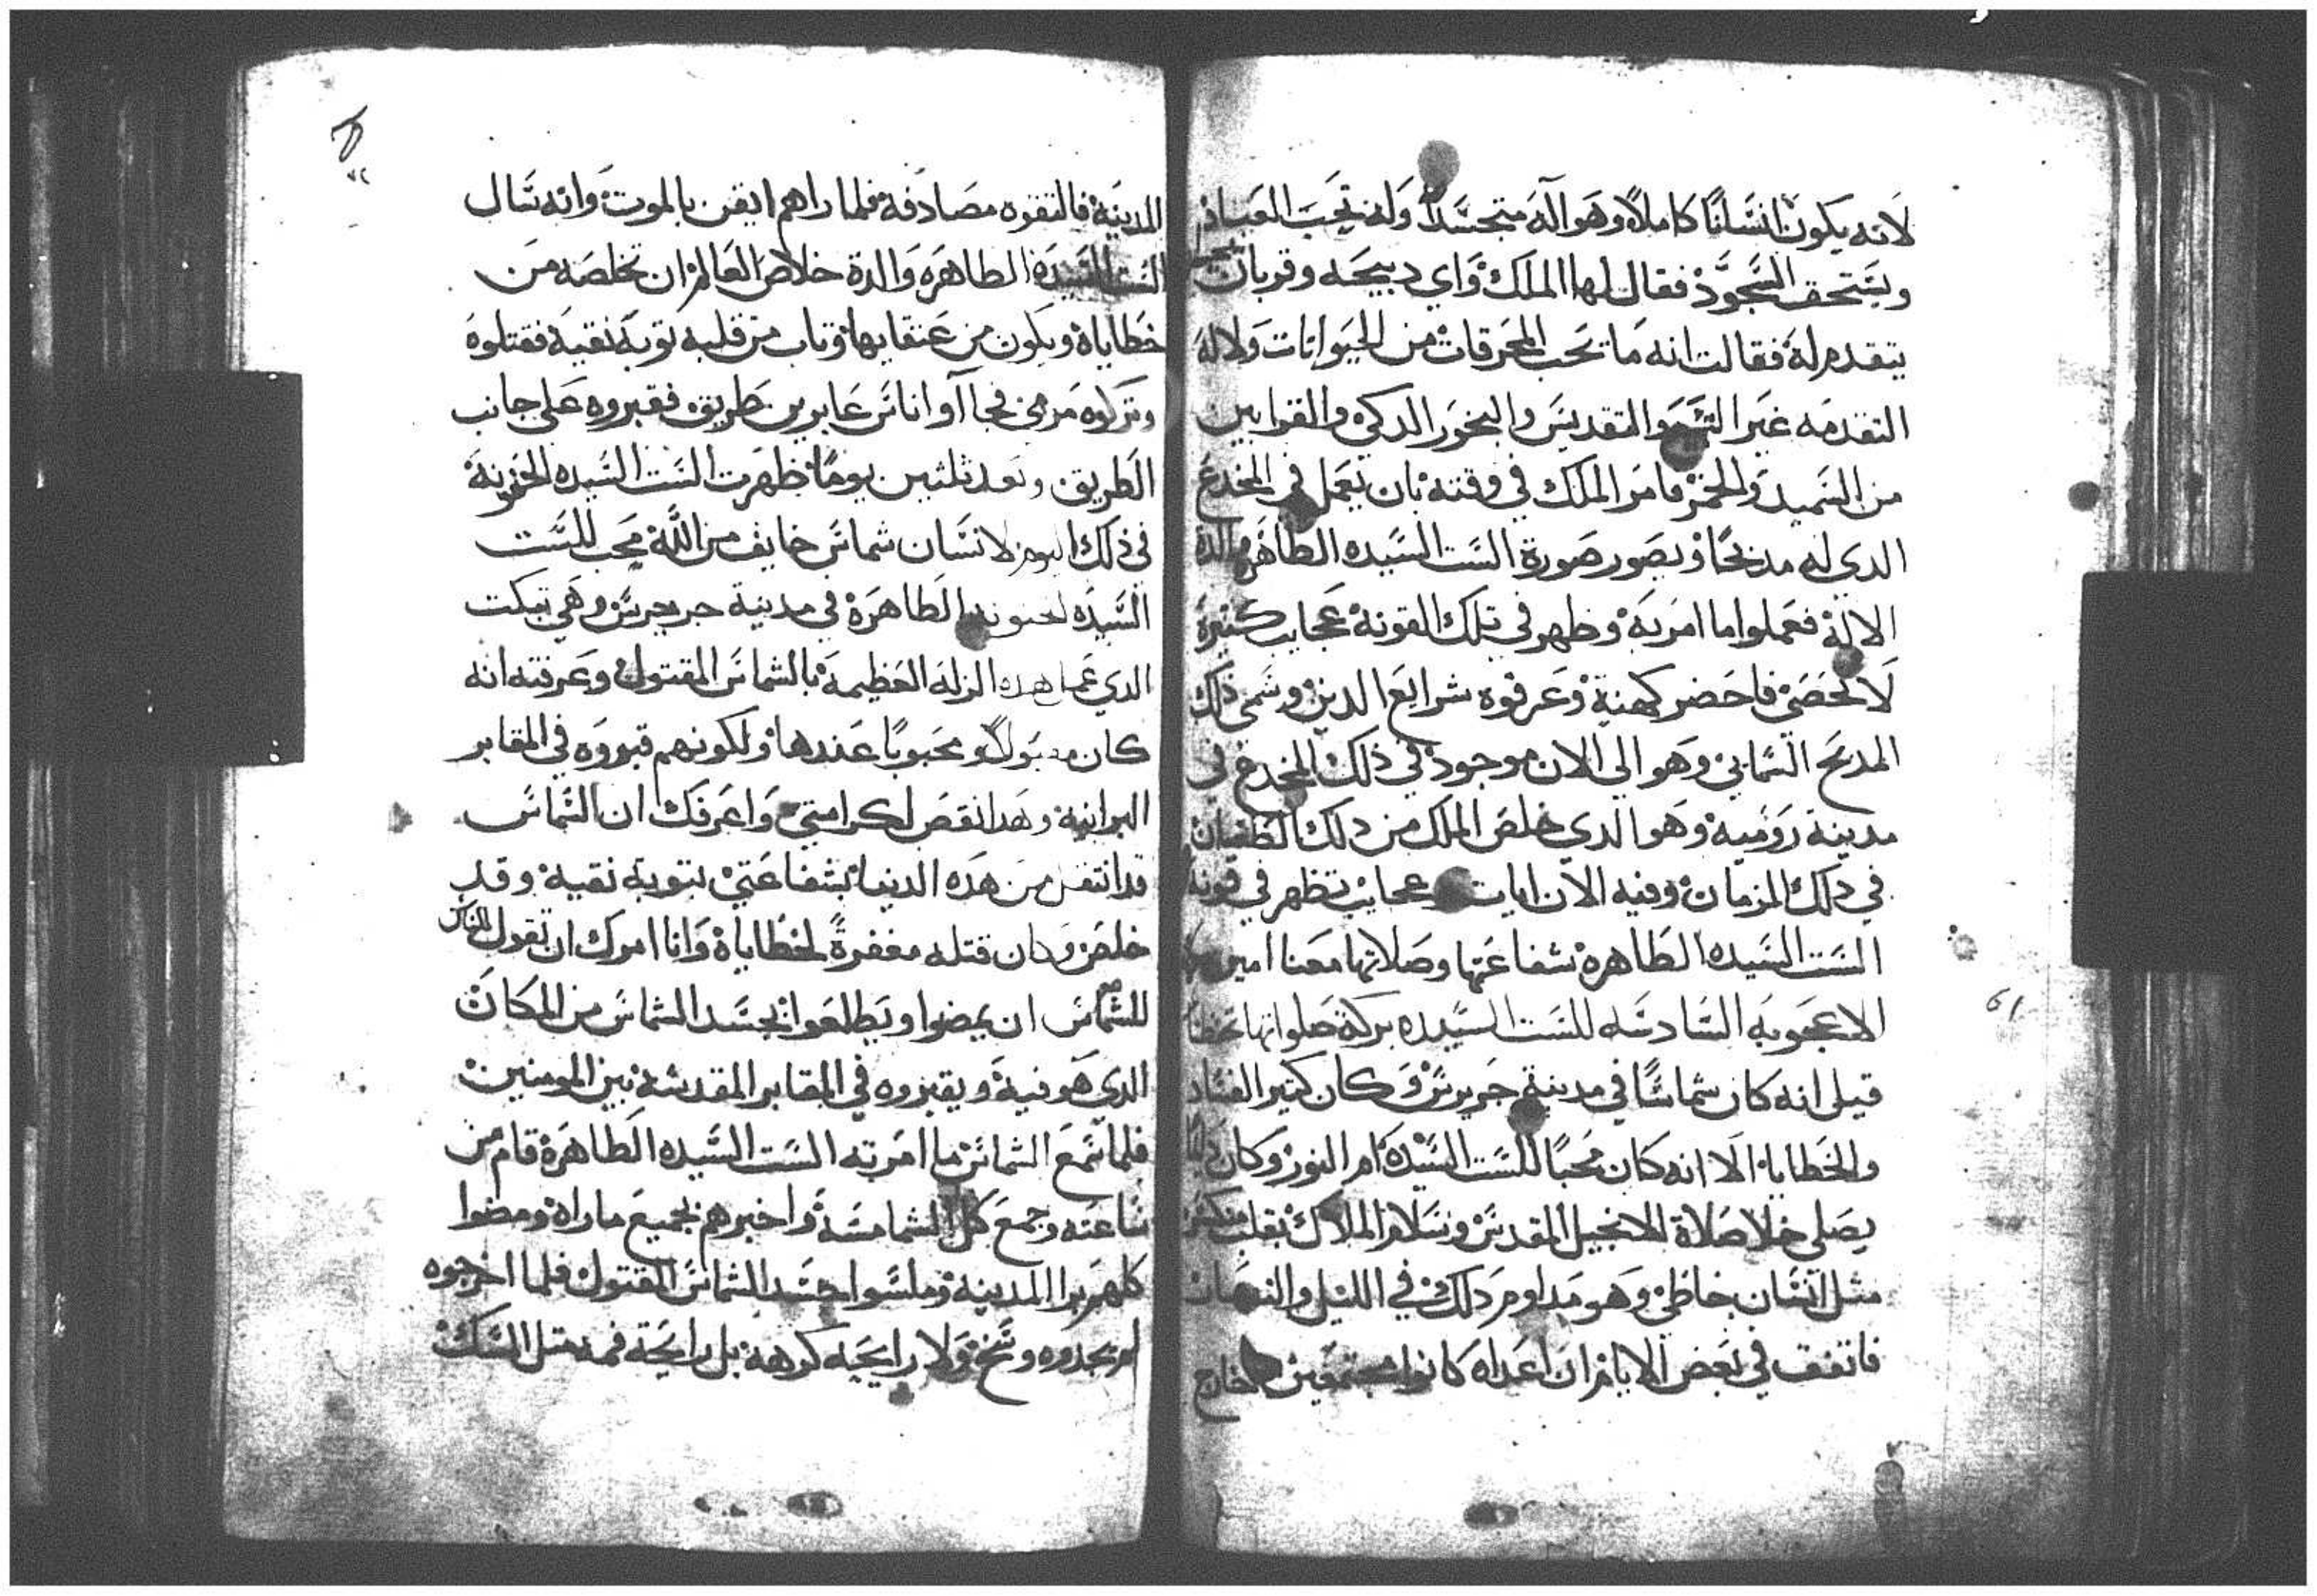 لانه يكون انسانا كاملا وهو اله متجسد وله تجب العباده
ويستحق السجود فقال لها الملك واي دبيحه وقربان
يتقدم له فقالت انه ما تحب المحرقات من الحيوانات ولا له
التقدمه غير التقديس والبخور الدكي والقرابين
من السميد والخمر فامر الملك في وقته بان يعمل في المخدع
الدي له مدبحا ويصور صورة الست السيده الطاهره والدة
الاله فعملوا ما امر به وظهر في تلك القونه عجايب كثيرة
لا تحصي فاحضر كهنة وعرفوه شرايع الدين وسمي ذلك
المدبح السمايي وهو الي الان موجود في ذلك المخدع في
مدينة رومية وهو الدي خلص الملك من دلك الطغيان
في دلك الزمان وفيه الان ايات وعجايب تظهر في قونة
الست السيده الطاهره شفاعتها وصلاتها معنا امين
الاعجوبه السادسه للست السيده بركة صلواتها تحفظنا
قيل انه كان شماسا في مدينة جريرس وكان كثير الفساد
والخطايا الا انه كان محبا للست السيدة ام النور وكان دايما
يصلي خلا صلاة الانجيل المقدس وسلام الملاك بقلب منكسر
مثل انسان خاطي وهو مداوم دلك في الليل والنهار
فاتفق في بعض الايام ان اعداه كانوا مجتمعين خارج
المدينة فالتقوه مصادفة فلما راهم ايقن بالموت وانه سال
الست السيدة الطاهره والدة خلاص العالم ان تخلصه من
خطاياه ويكون من عتقايها وتاب من قلبه توبه نقية فقتلوه
وتركوه مرمي فجاآوا ناس عابرين طريق فقبروه على جانب
الطريق وبعد ثلثين يوما ظهرت الست السيده الحنونة
في ذلك اليوم لانسان شماس خايف من الله محب للست
السيده الحنونه الطاهرة في مدينة جريرس وهي تبكت
الدي عمل هده الزله العظيمة بالشماس المقتول وعرفته انه
كان مقبولا ومحبوبا عندها ولكونهم قبروه في المقابر
البرانية وهدا نقص لكرامتي واعرفك ان الشماس
قد انتقل من هده الدنيا بشفاعتي بتوبة نقية وقد
خلص وكان قتله مغفرة لخطاياه وانا امرك ان تقول
للشماس ان يمضوا ويطلعوا بجسد الشماس من المكان
الدي هو فية ويقبروه في المقابر المقدسة بين المومنين
فلما سمع الشماس ما امرته الست السيده الطاهرة قام من
ساعته وجمع كل الشمامسة واخبرهم بجميع ما راه ومضوا
كلهم برا المدينة وملسوا جسد الشماس المقتول فلما اخرجوه
لم يجدوه وسخ ولا رايحه كرهة بل رايحة فمه مثل المسك
61